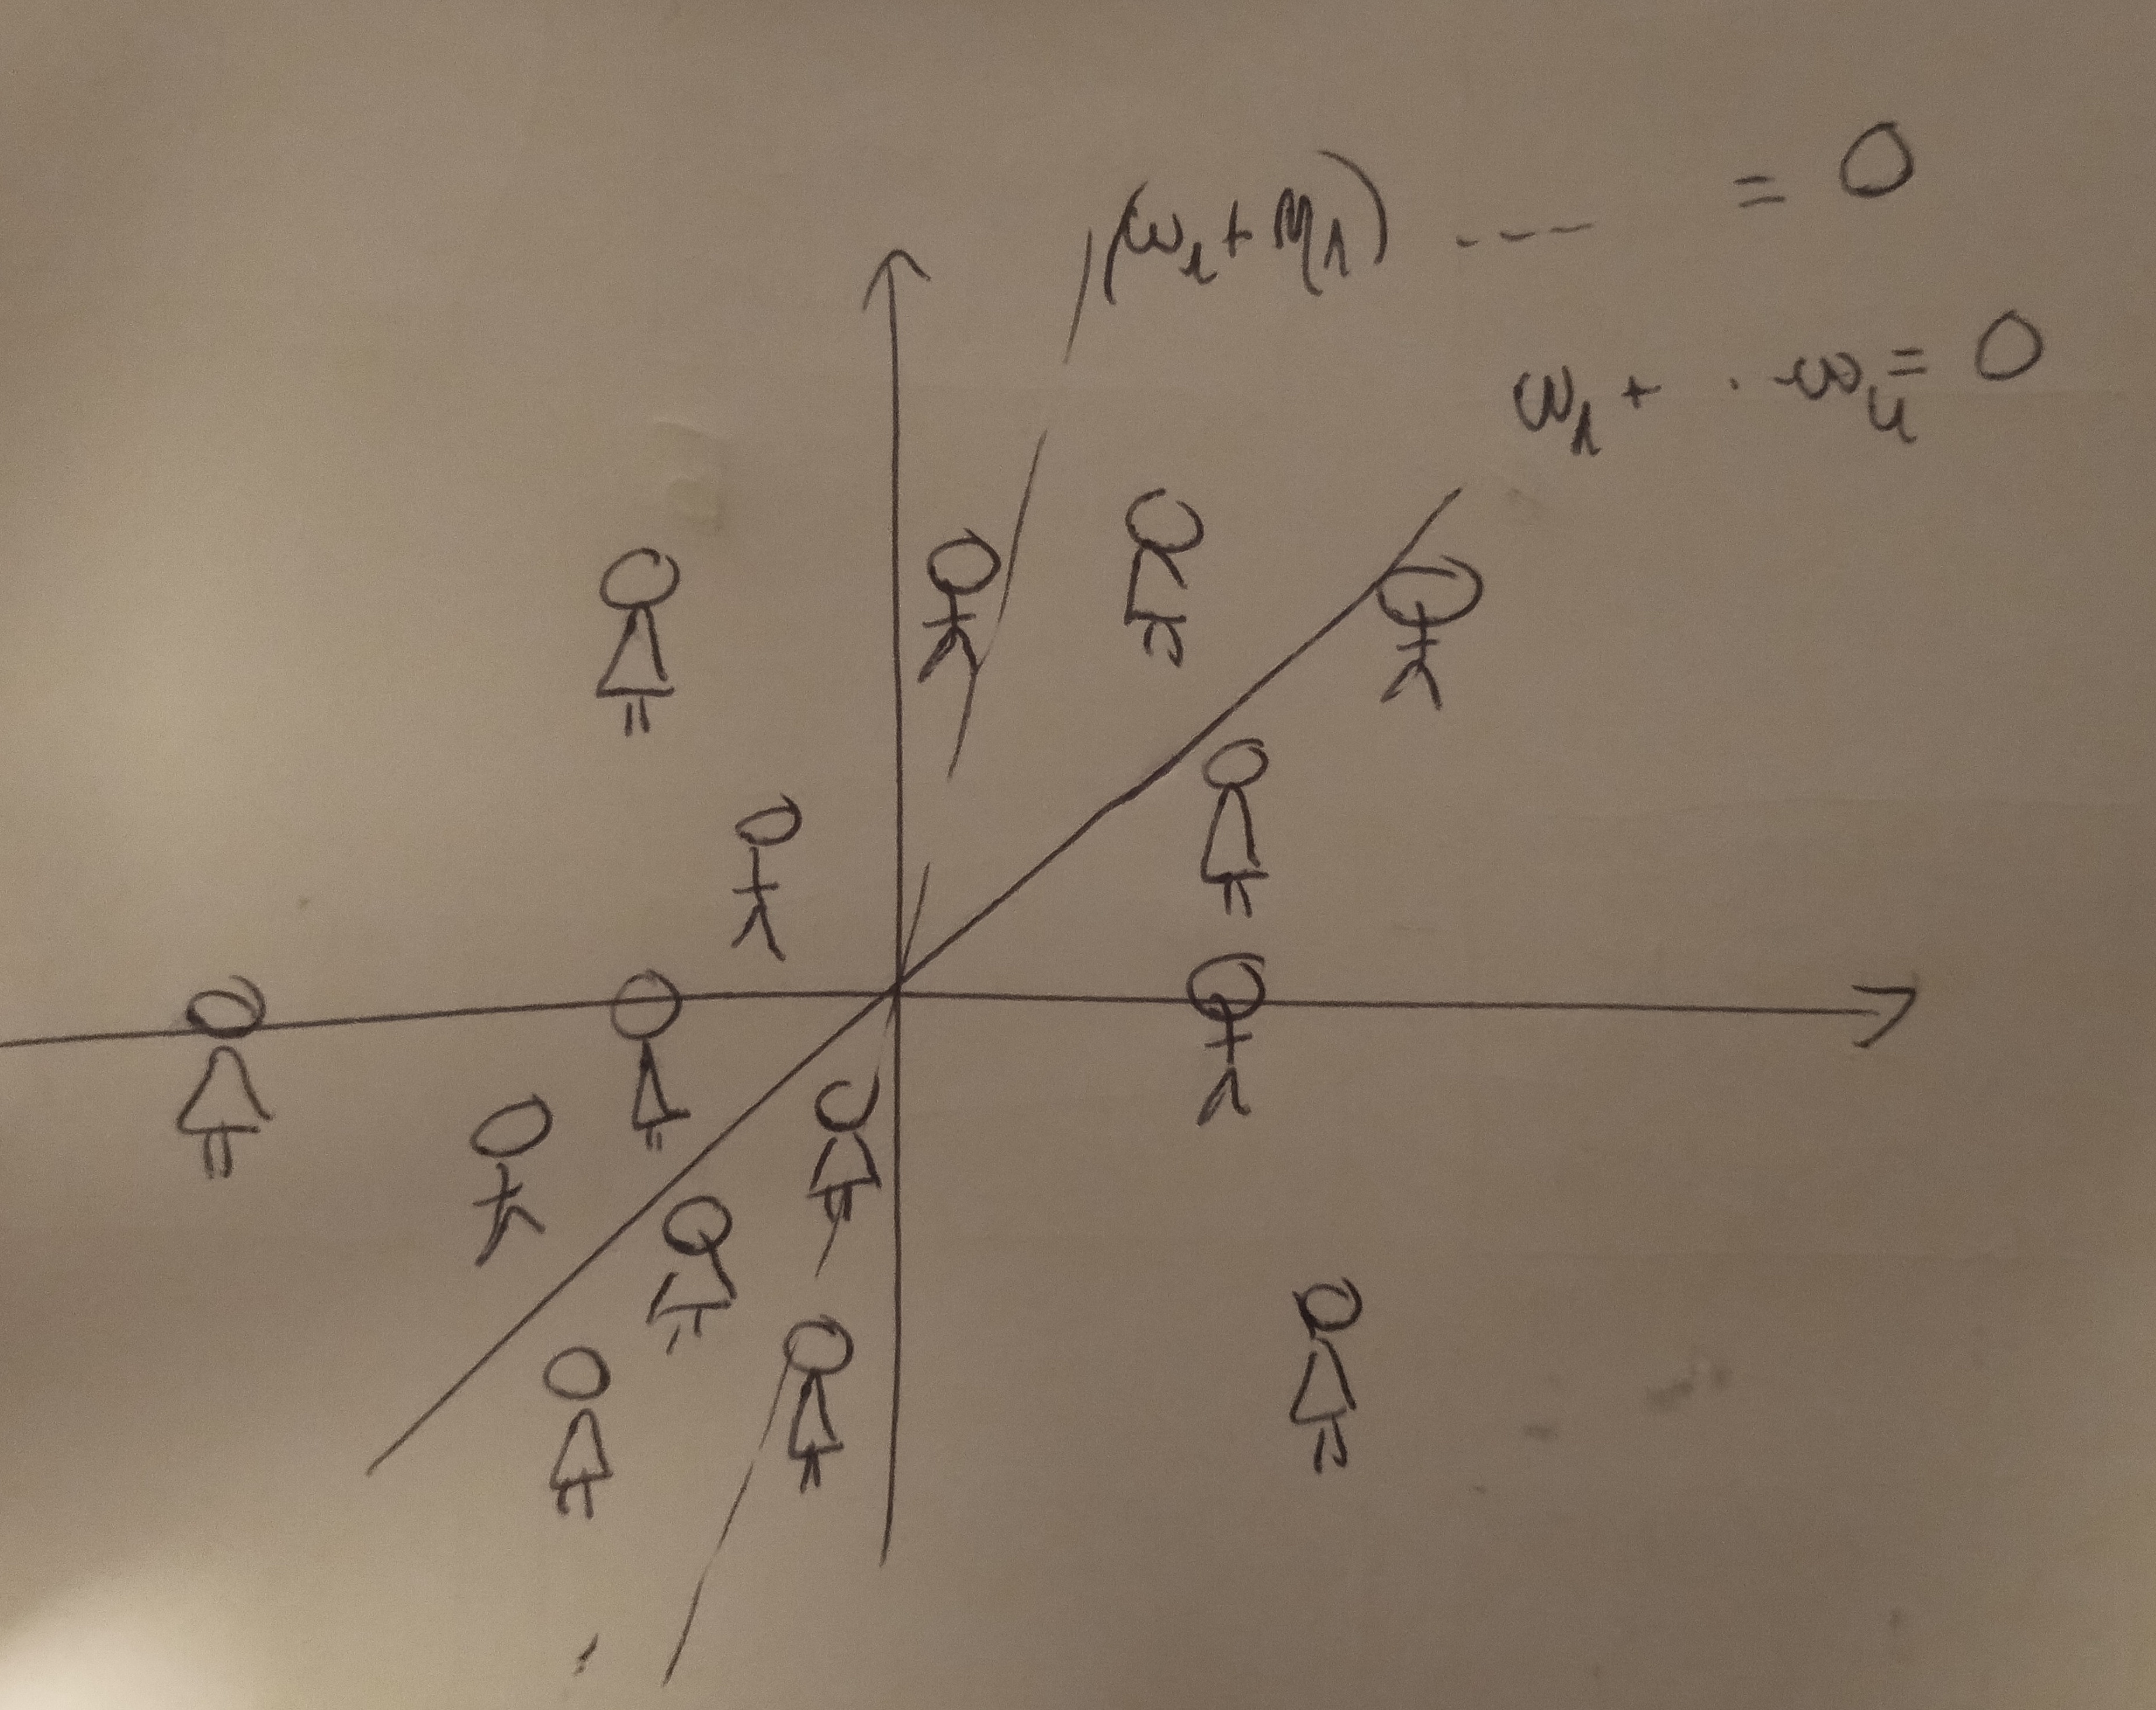 (ω₁ + η₁) ---- = 0
ω₁ + · · ω₄ = 0